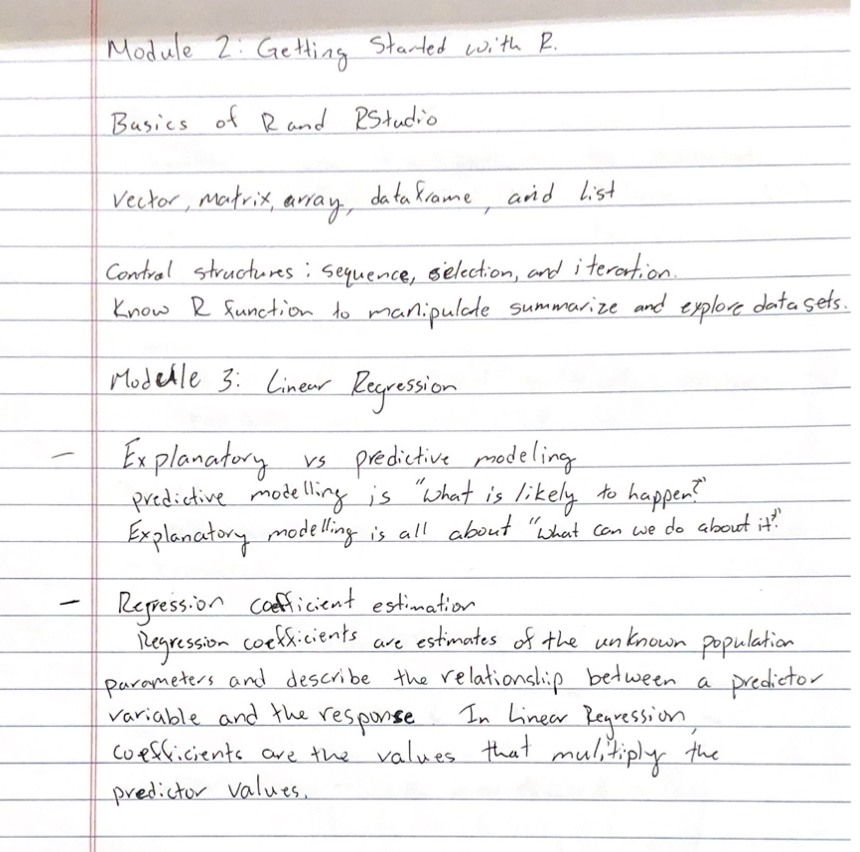 Module 2: Getting Started with R.
Basics of R and RStudio
Vector, matrix, array, dataframe, and List
Control structures: sequence, selection, and iteration.
Know R function to manipulate summarize and explore datasets.
Module 3: Linear Regression
- Explanatory vs predictive modeling
predictive modelling is "What is likely to happen?"
Explanatory modelling is all about "what can we do about it?"
- Regression coefficient estimation
Regression coefficients are estimates of the unknown population
parameters and describe the relationship between a predictor
variable and the response. In Linear Regression,
coefficients are the values that multiply the
predictor values.